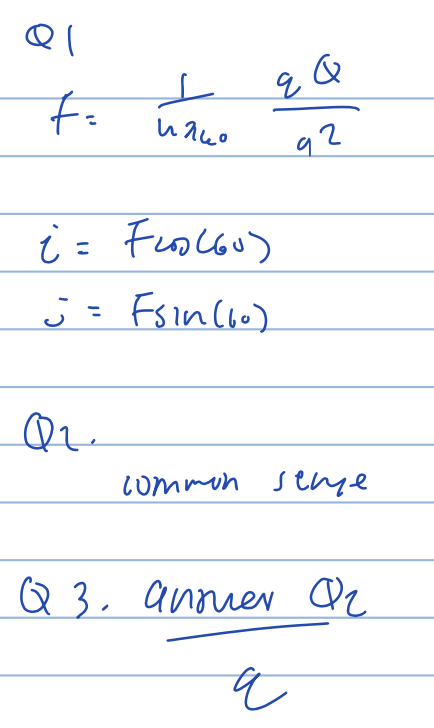 Q1
f = 1/(4πε0) qQ/a²
i = Fcos(60)
j = Fsin(60)
Q2.
common sense
Q3. answer Q2 / q